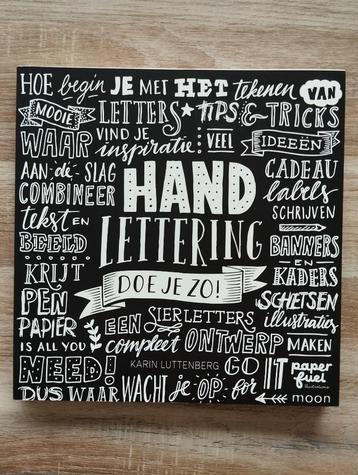 HOE begin JE MET HET tekenen VAN
MOOIE LETTERS ★ TIPS & TRICKS
WAAR VIND JE inspiratie VEEL IDEEËN
AAN de SLAG CADEAU
COMBINEER HAND labels
tekst EN SCHRIJVEN
BEELD LETTERING BANNERS
KRIJT EN
PEN DOE JE ZO! KADERS
PAPIER SIERLETTERS SCHETSEN
IS ALL YOU EEN illustraties
NEED! compleet ONTWERP MAKEN
KARIN LUTTENBERG GO IT paper fuel
DUS WAAR WACHT je OP for moon